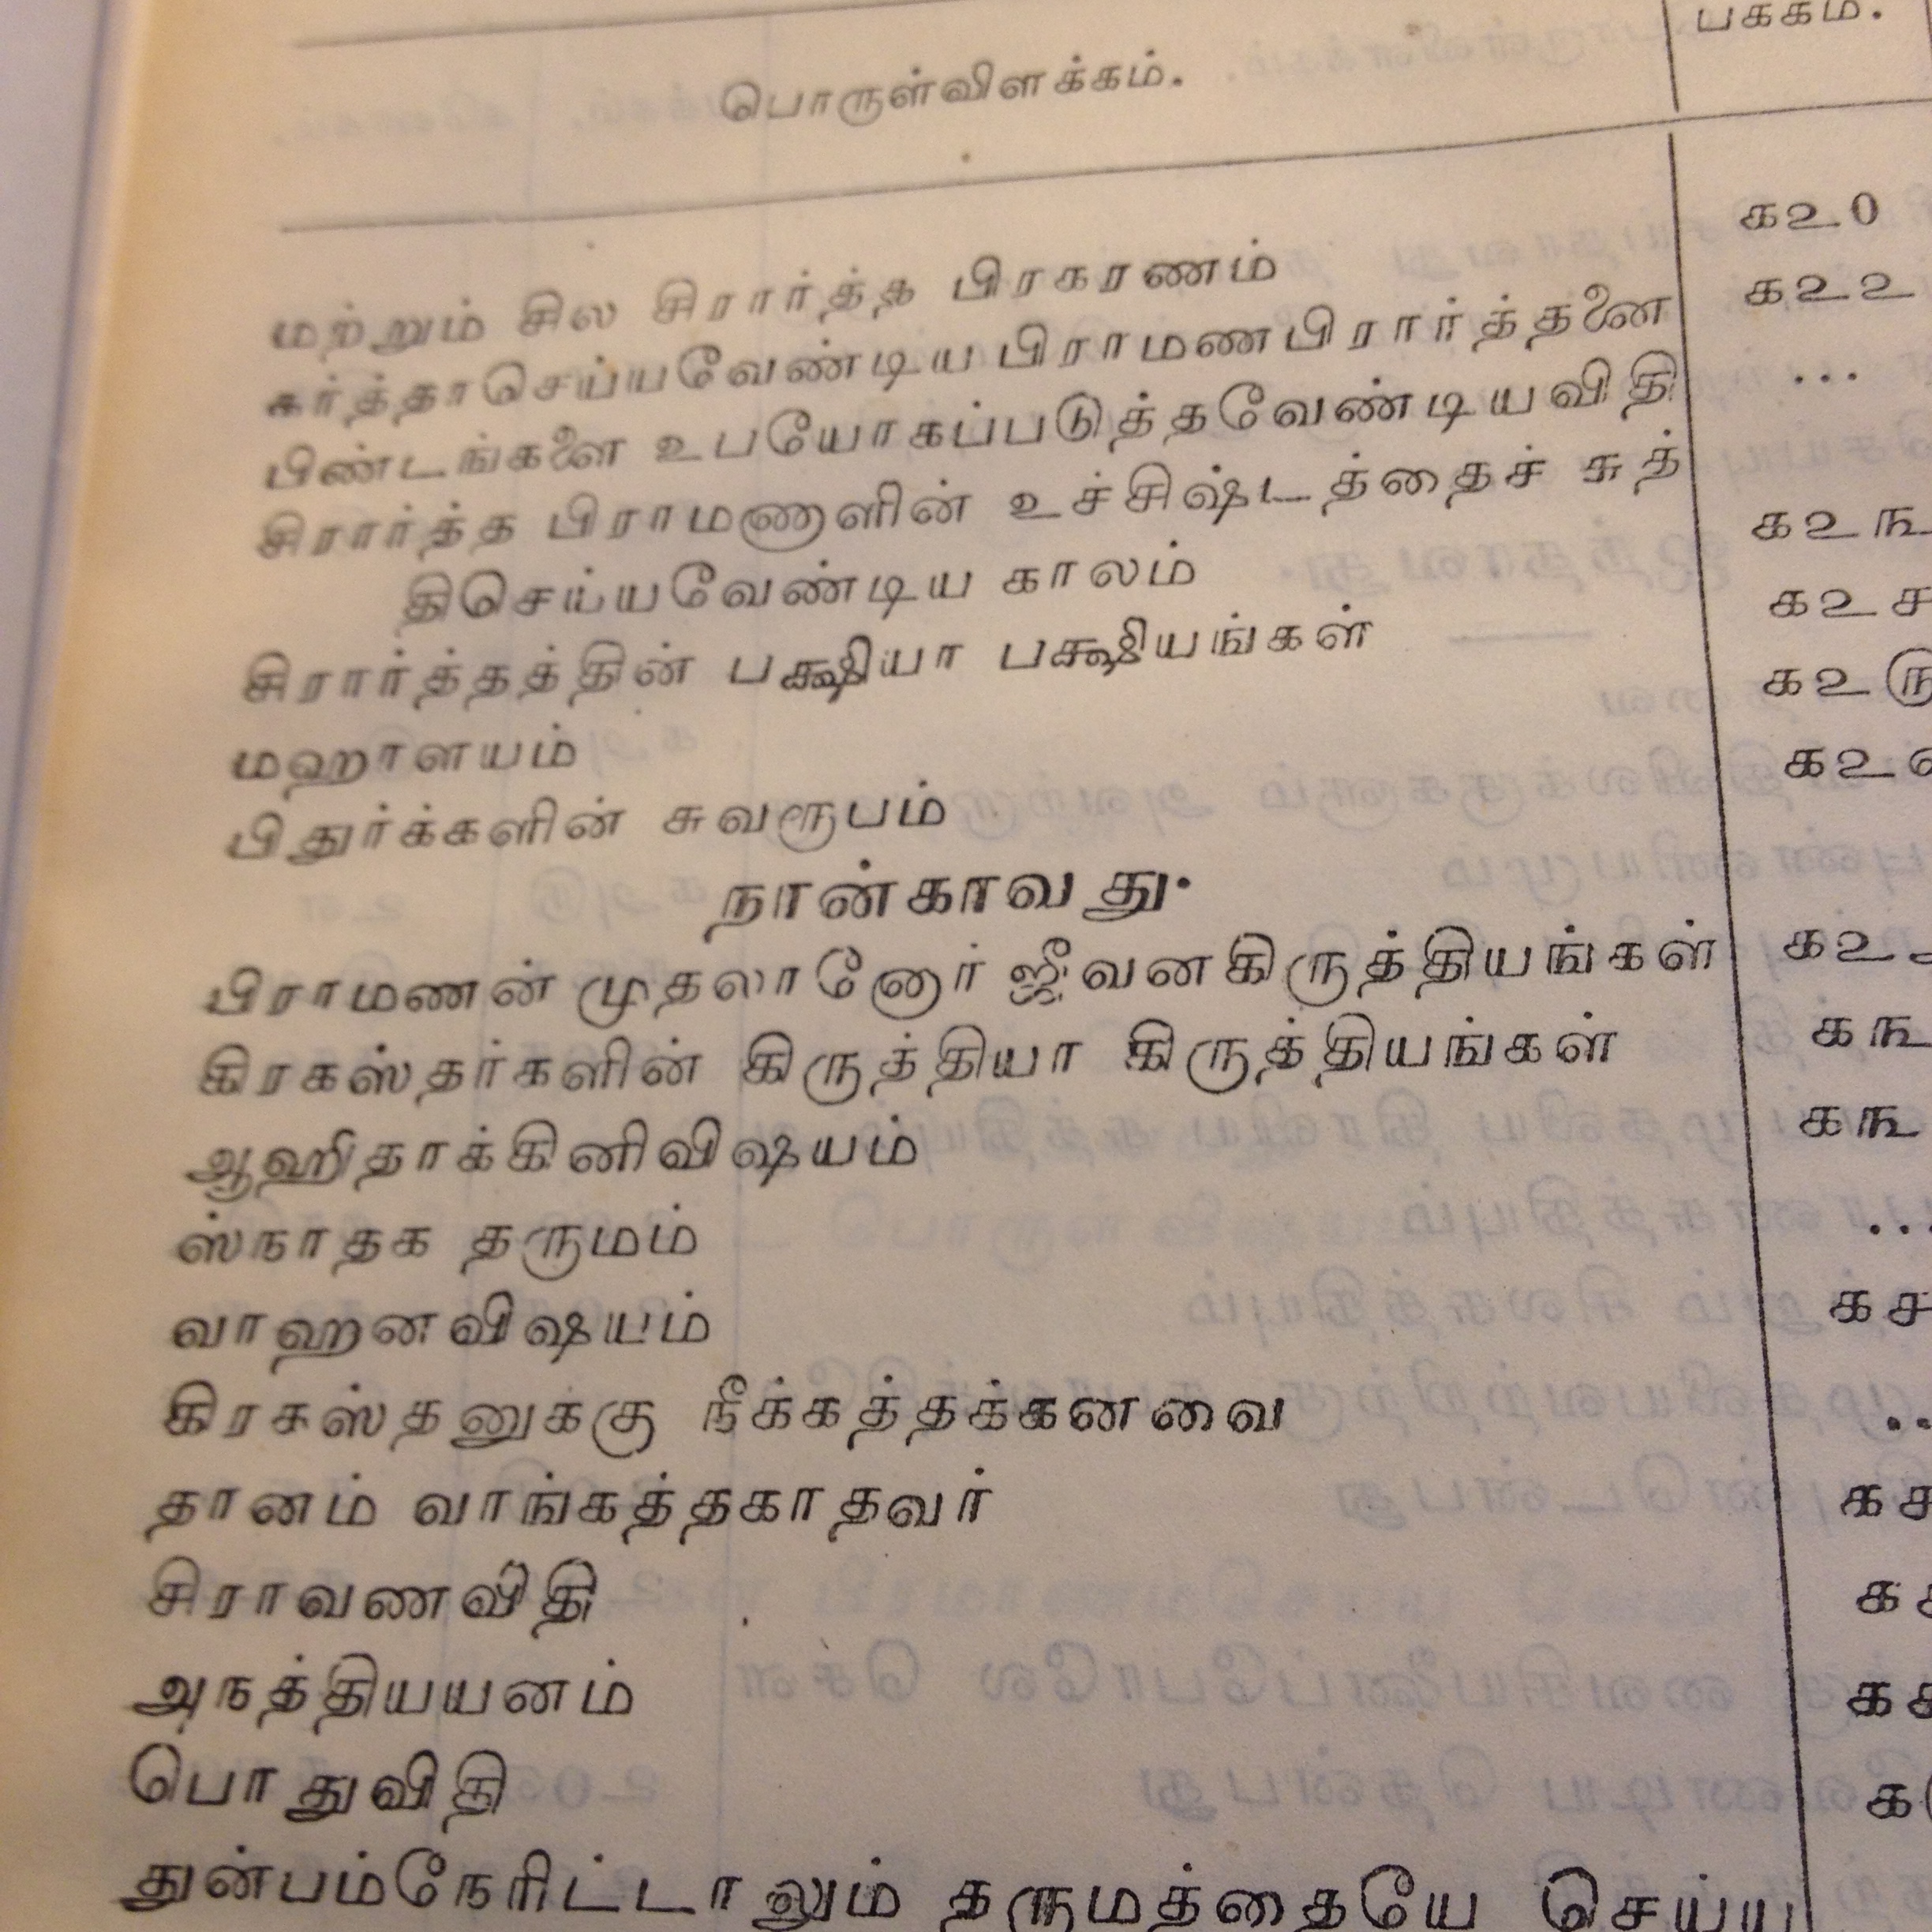 பக்கம்.
பொருள்விளக்கம்.
மற்றும் சில சிரார்த்த பிரகரணம் கஉ0
கர்த்தாசெய்யவேண்டிய பிராமணபிரார்த்தனை கஉஉ
பிண்டங்களை உபயோகப்படுத்தவேண்டியவிதி ...
சிரார்த்த பிராமணாளின் உச்சிஷ்டத்தைச் சுத்
திசெய்யவேண்டிய காலம் கஉ௩
சிரார்த்தத்தின் பக்ஷியா பக்ஷியங்கள் கஉச
மஹாளயம் கஉரு
பிதுர்க்களின் சுவரூபம் கஉ
நான்காவது.
பிராமணன் முதலானோர் ஜீவனகிருத்தியங்கள் கஉ
கிரகஸ்தர்களின் கிருத்தியா கிருத்தியங்கள் க௩
ஆஹிதாக்கினிவிஷயம் க௩
ஸ்நாதக தருமம் ...
வாஹனவிஷயம் கச
கிரகஸ்தனுக்கு நீக்கத்தக்கனவை ..
தானம் வாங்கத்தகாதவர் கச
சிராவணவிதி க
அநத்தியயனம் க
பொதுவிதி க
துன்பம்நேரிட்டாலும் தருமத்தையே செய்ய